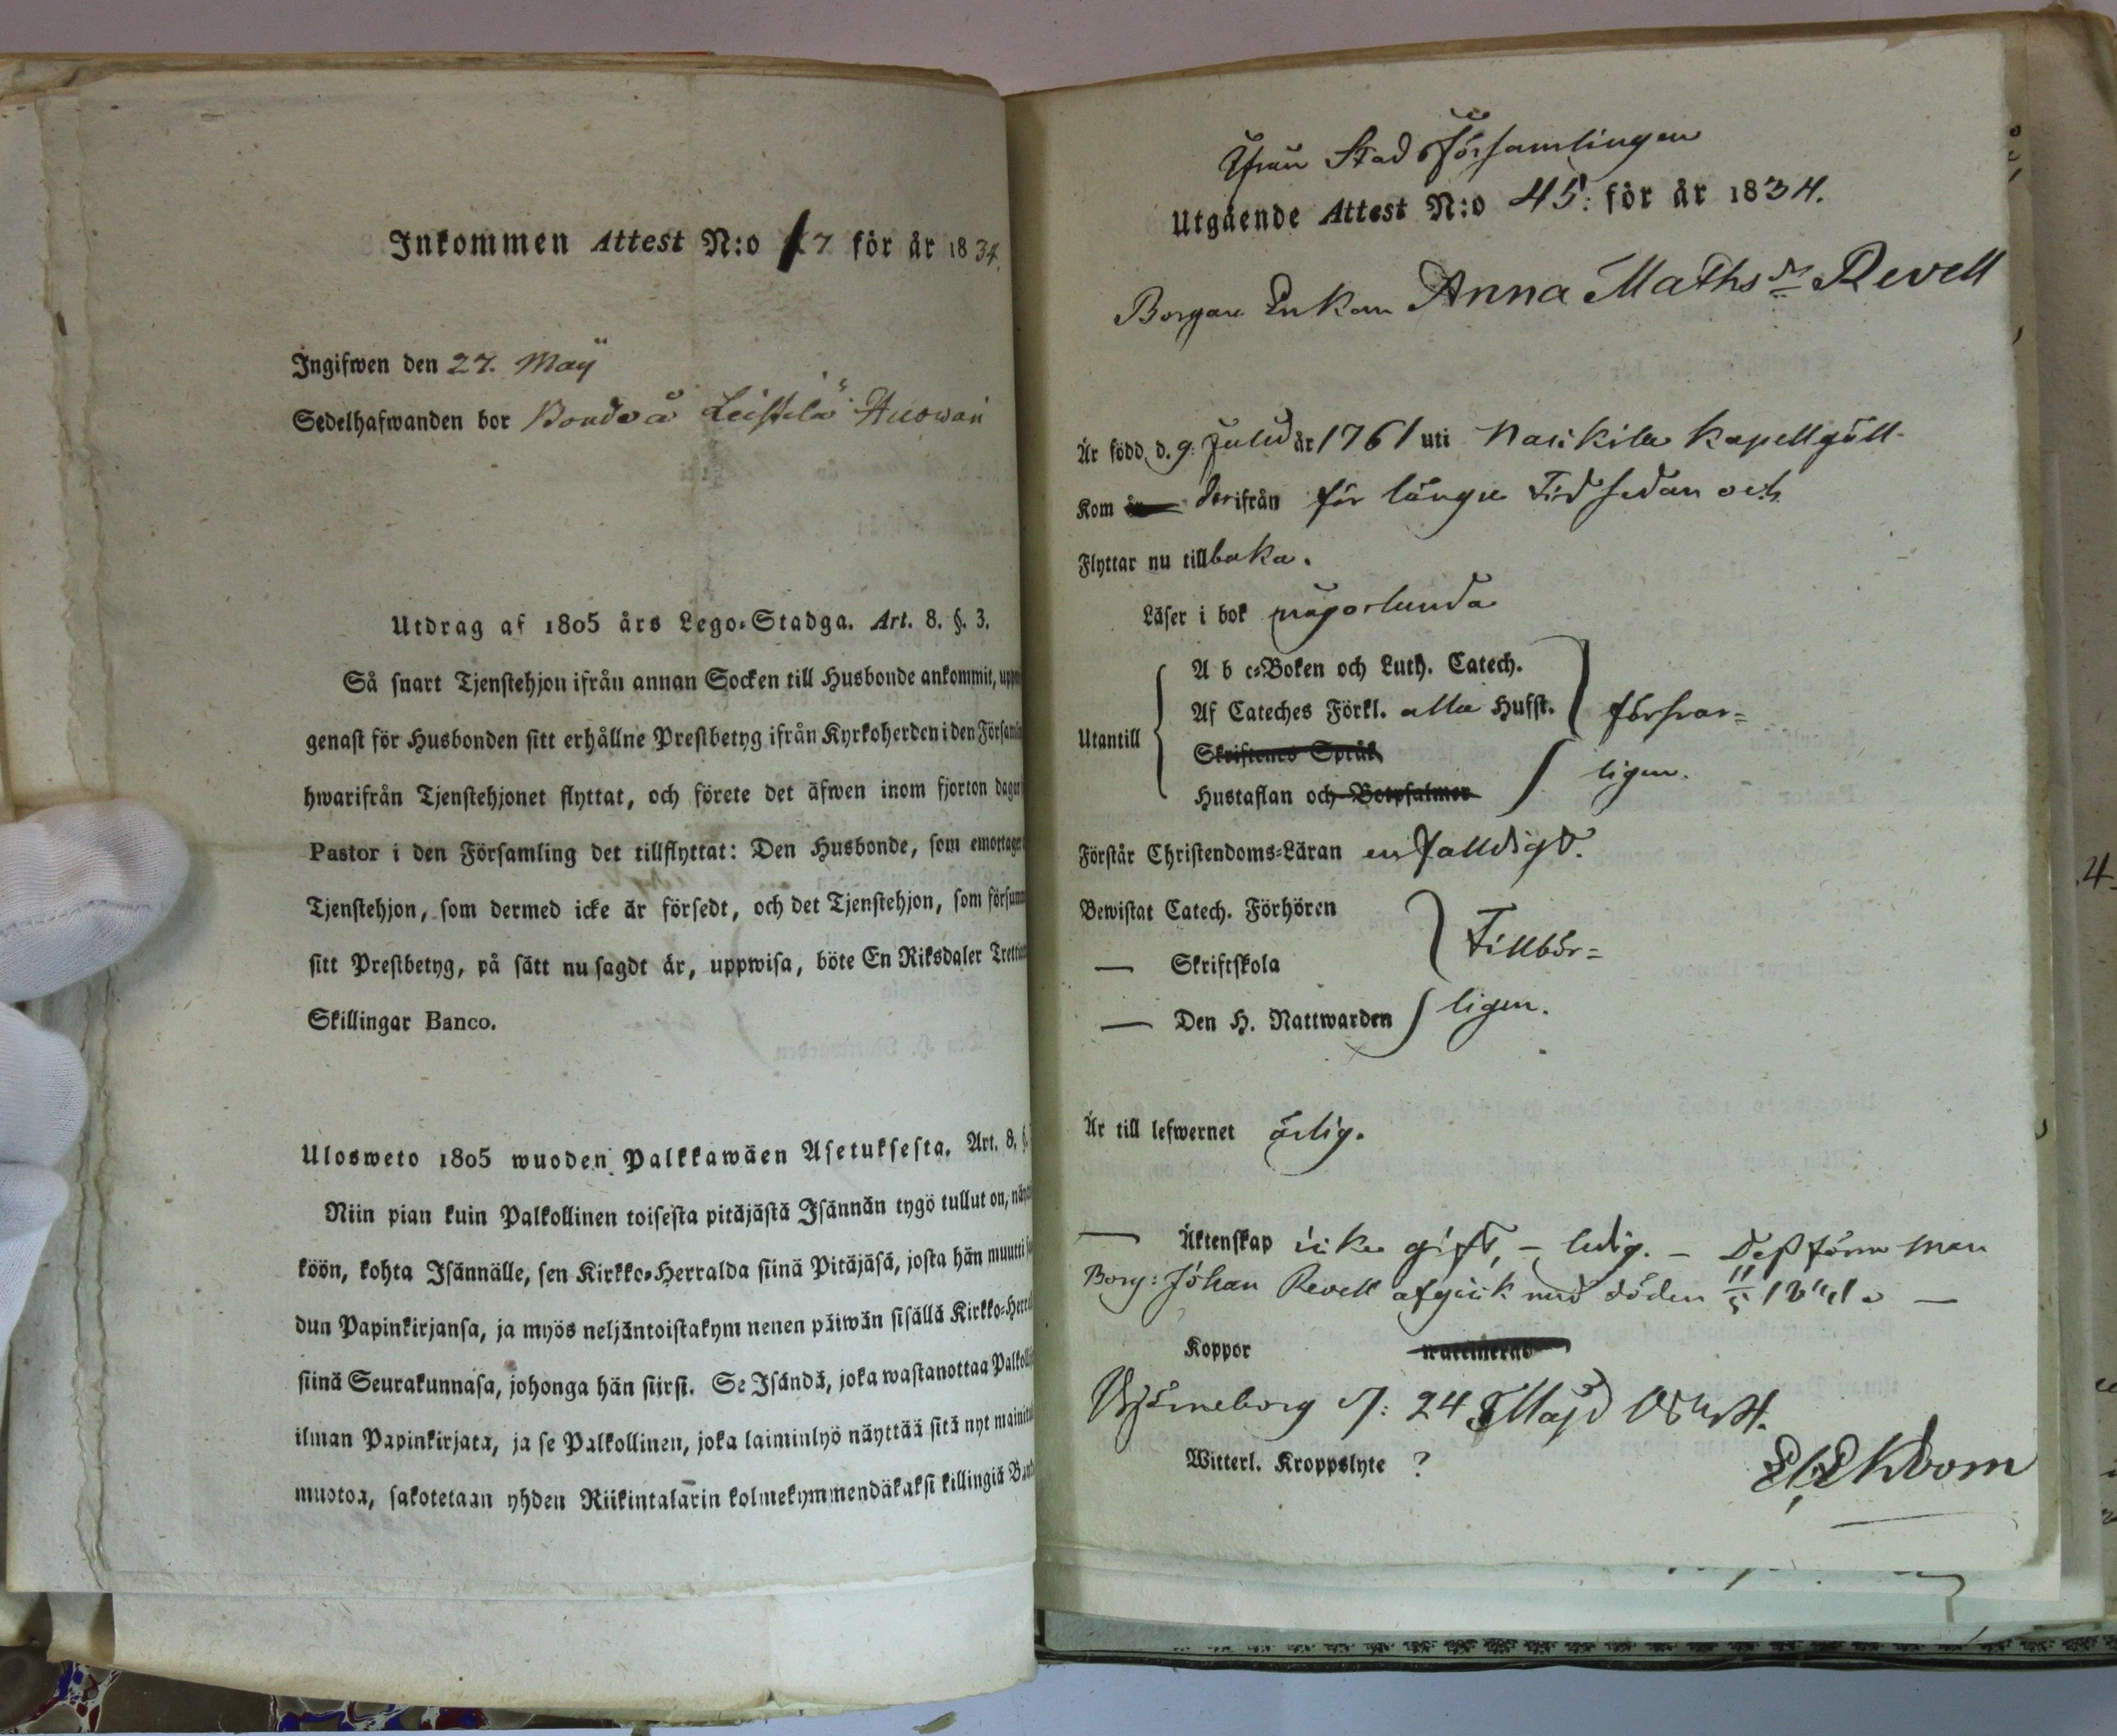 Inkommen Attest N:o 17 för år 1834.
Ingifwen den 27. Maÿ
Sedelhafwanden bor Bonde å Leistilä
Utdrag af 1805 års Lego-Stadga. Art. 8. §. 3.
Så snart Tjenstehjon ifrån annan Socken till Husbonde ankommit,
genast för Husbonden sitt erhållne Prestbetyg ifrån Kyrkoherden i den
hwarifrån Tjenstehjonet flyttat, och förete det äfwen inom fjorton
Pastor i den Församling det tillflyttat: Den Husbonde, som
Tjenstehjon, som dermed icke är försedt, och det Tjenstehjon, som
sitt Prestbetyg, på sätt nu sagdt är, uppwisa, böte En Riksdaler
Skillingar Banco.
Ulosweto 1805 wuoden Palkkawäen Asetuksesta. Art. 8. §.
Niin pian kuin Palkollinen toisesta pitäjästä Isännän tygö tullut on,
köön, kohta Isännälle, sen Kirkko-Herralda siinä Pitäjäsä, josta hän muutti
dun Papinkirjansa, ja myös neljäntoistakymmenen päiwän sisällä
siinä Seurakunnasa, johonga hän siirsi. Se Isändä, joka wastanottaa
ilman Papinkirjata, ja se Palkollinen, joka laiminlyö näyttää sitä nyt
muotoa, sakotetaan yhden Riikintalarin kolmekymmendäkaksi killingiä
Ifrån Stads Församlingen
Utgående Attest N:o 45: för år 1834.
Borgare Enkan Anna Mathsdr Revell
Är född d. 9: Julii år 1761 uti Nackila Kapellgäll
Kom år derifrån för längre tid sedan och
Flyttar nu tillbaka.
Läser i bok någorlunda
Utantill
A b c-Boken och Luth. Catech.
Af Cateches Förkl. alla Hufst.
Skriftenes Språk
Hustaflan och Botpsalmer
försvar=
ligen.
Förstår Christendoms-Läran enfalldigt.
Bewistat Catech. Förhören
— Skriftskola
— Den H. Nattwarden
Tillbör=
ligen.
Är till lefwernet ärlig.
— Äktenskap icke gift, – ledig. – Dess förra man
Borg: Johan Revell afgick med döden
Koppor waccinerad
Björneborg d: 24 Maji 1834.
Witterl. Kroppslyte ?